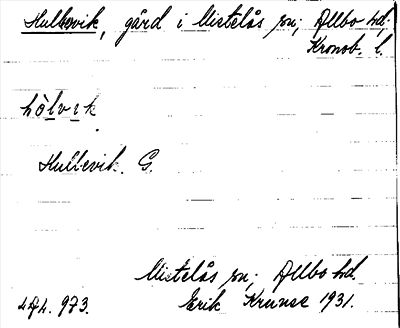 Hullevik, gård i Mistelås sn; Allbo hd.
Kronob. l.
hòlvık
Hullevik. G.
Mistelås sn; Allbo hd.
Erik Krunse 1931.
973.